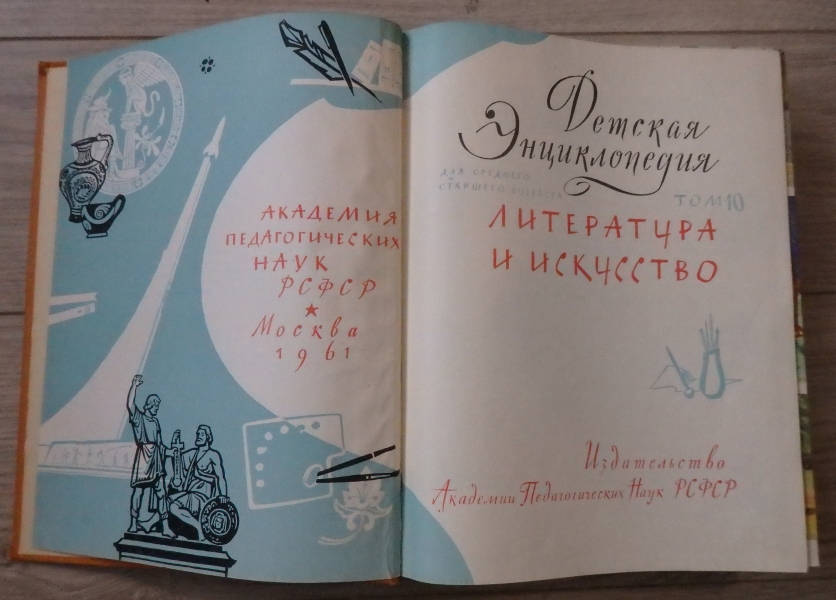 АКАДЕМИЯ
ПЕДАГОГИЧЕСКИХ
НАУК
РСФСР
Москва
1961
Детская
Энциклопедия
ДЛЯ СРЕДНЕГО
И СТАРШЕГО ВОЗРАСТА
ТОМ 10
ЛИТЕРАТУРА
И ИСКУССТВО
Издательство
Академии Педагогических Наук РСФСР